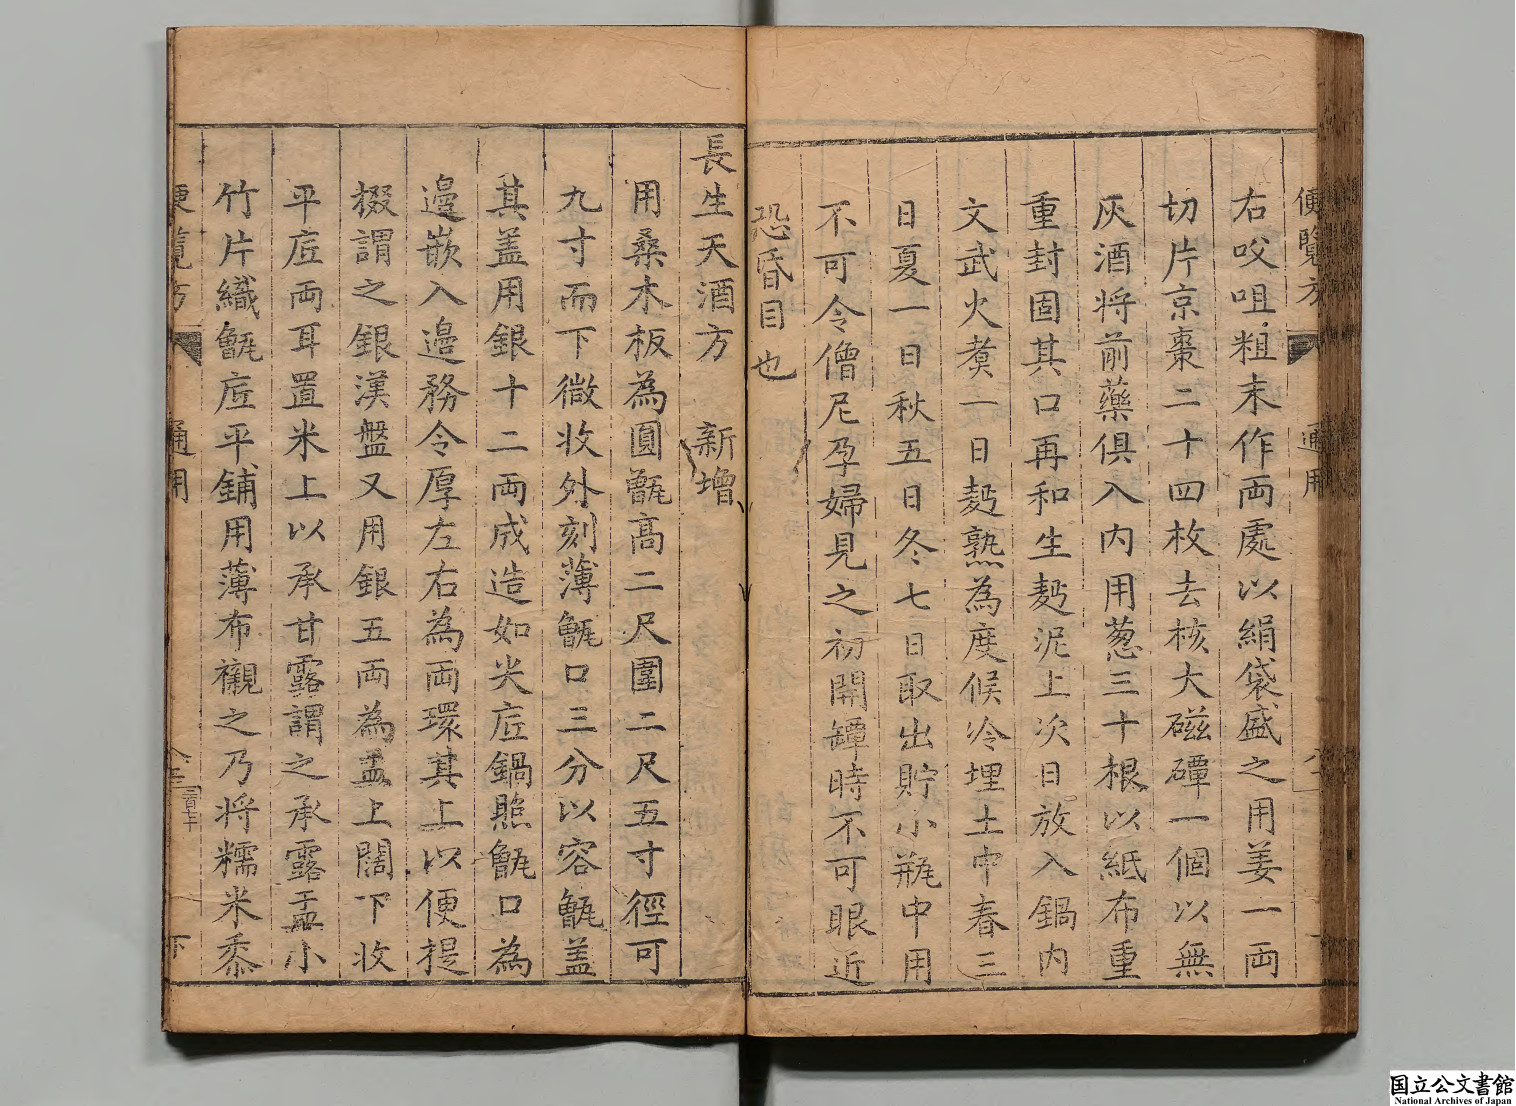 便覽方 通用
右咬咀粗末作両處以絹袋盛之用姜一両
切片京棗二十四枚去核大磁磹一個以無
灰酒将前藥俱入内用葱三十根以紙布重
重封固其口再和生麪泥上次日放入鍋内
文武火煑一日麪熟為度候冷埋土中春三
日夏一日秋五日冬七日取出貯小瓶中用
不可令僧尼孕婦見之初開罈時不可眼近
恐昏目也
長生天酒方 新增
用桑木板為圓甑高二尺圍二尺五寸徑可
九寸而下微收外刻薄甑口三分以容甑盖
其盖用銀十二両成造如尖底鍋照甑口為
邉嵌入邉務令厚左右為両環其上以便提
掇謂之銀漢盤又用銀五両為盂上闊下收
平底両耳置米上以承甘露謂之承露盂小
竹片織甑底平鋪用薄布襯之乃将糯米黍
便覽方 通用 下
国立公文書館
National Archives of Japan